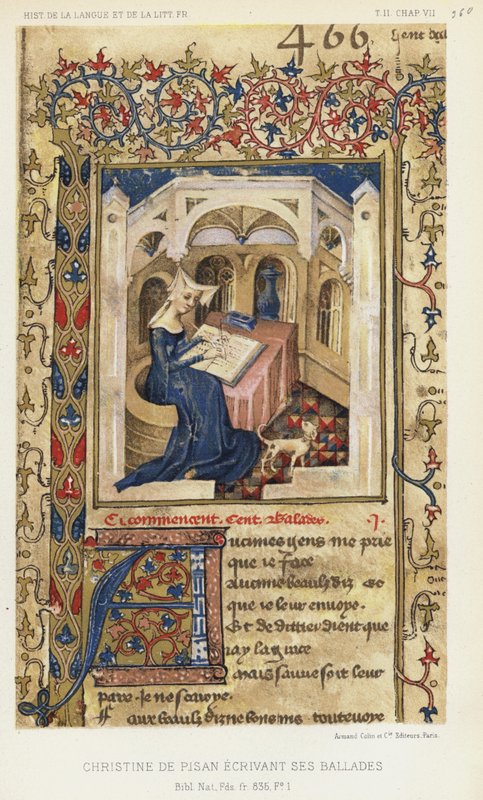 HIST. DE LA LANGUE ET DE LA LITT. FR
T. II. CHAP VII
360
466.
gent bal
Ci commencent. Cent. Balades. .J.
Aucunes gens me prie
que je face
Aucuns beaulz diz et
que je leur envoye.
Et de dittier dient que
j'ay la grace
Mais sauve soit leur
paix. Je ne sçavoye.
faire beaulz diz ne bons mes toutevoye
Armand Colin et Cie Editeurs, Paris.
CHRISTINE DE PISAN ÉCRIVANT SES BALLADES
Bibl. Nat., Fds. fr. 835, F° 1